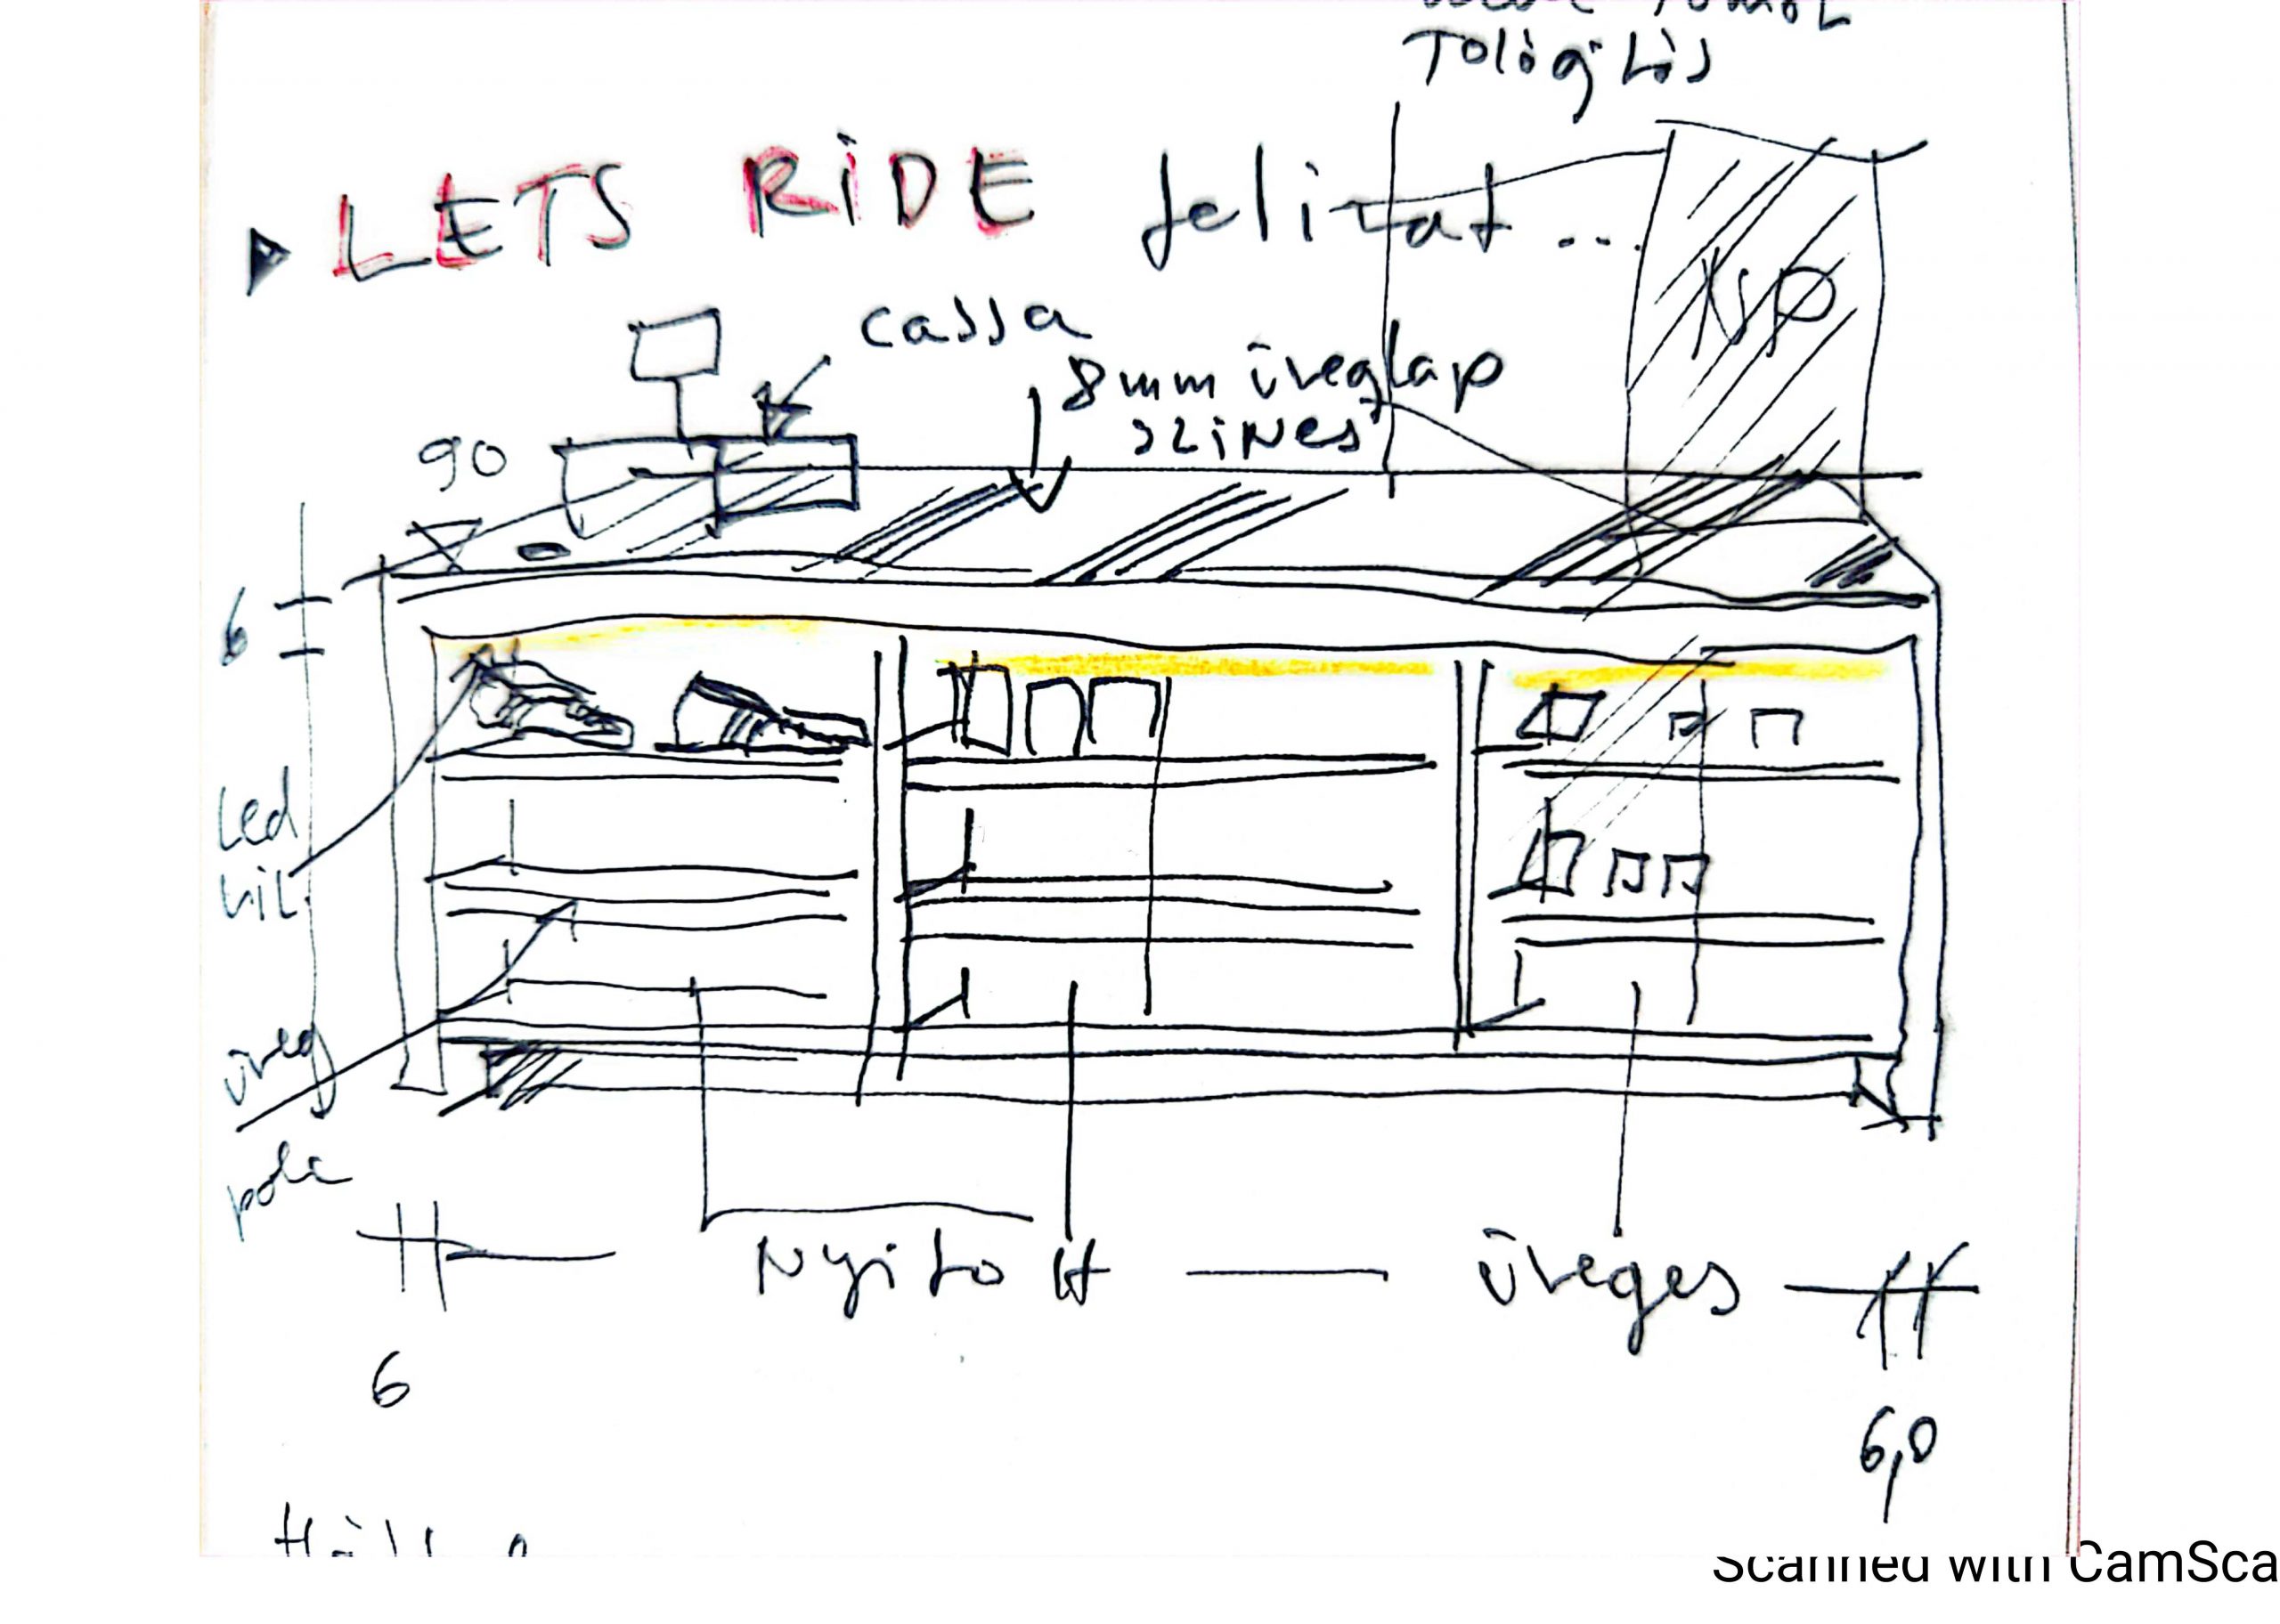 Tológ. Lós
LETS RiDE felirat ...
cassa
8mm üveglap
szines
90
6
Led
üveg
polc
Nyitott — üveges
6
6,0
Scanned with CamSca